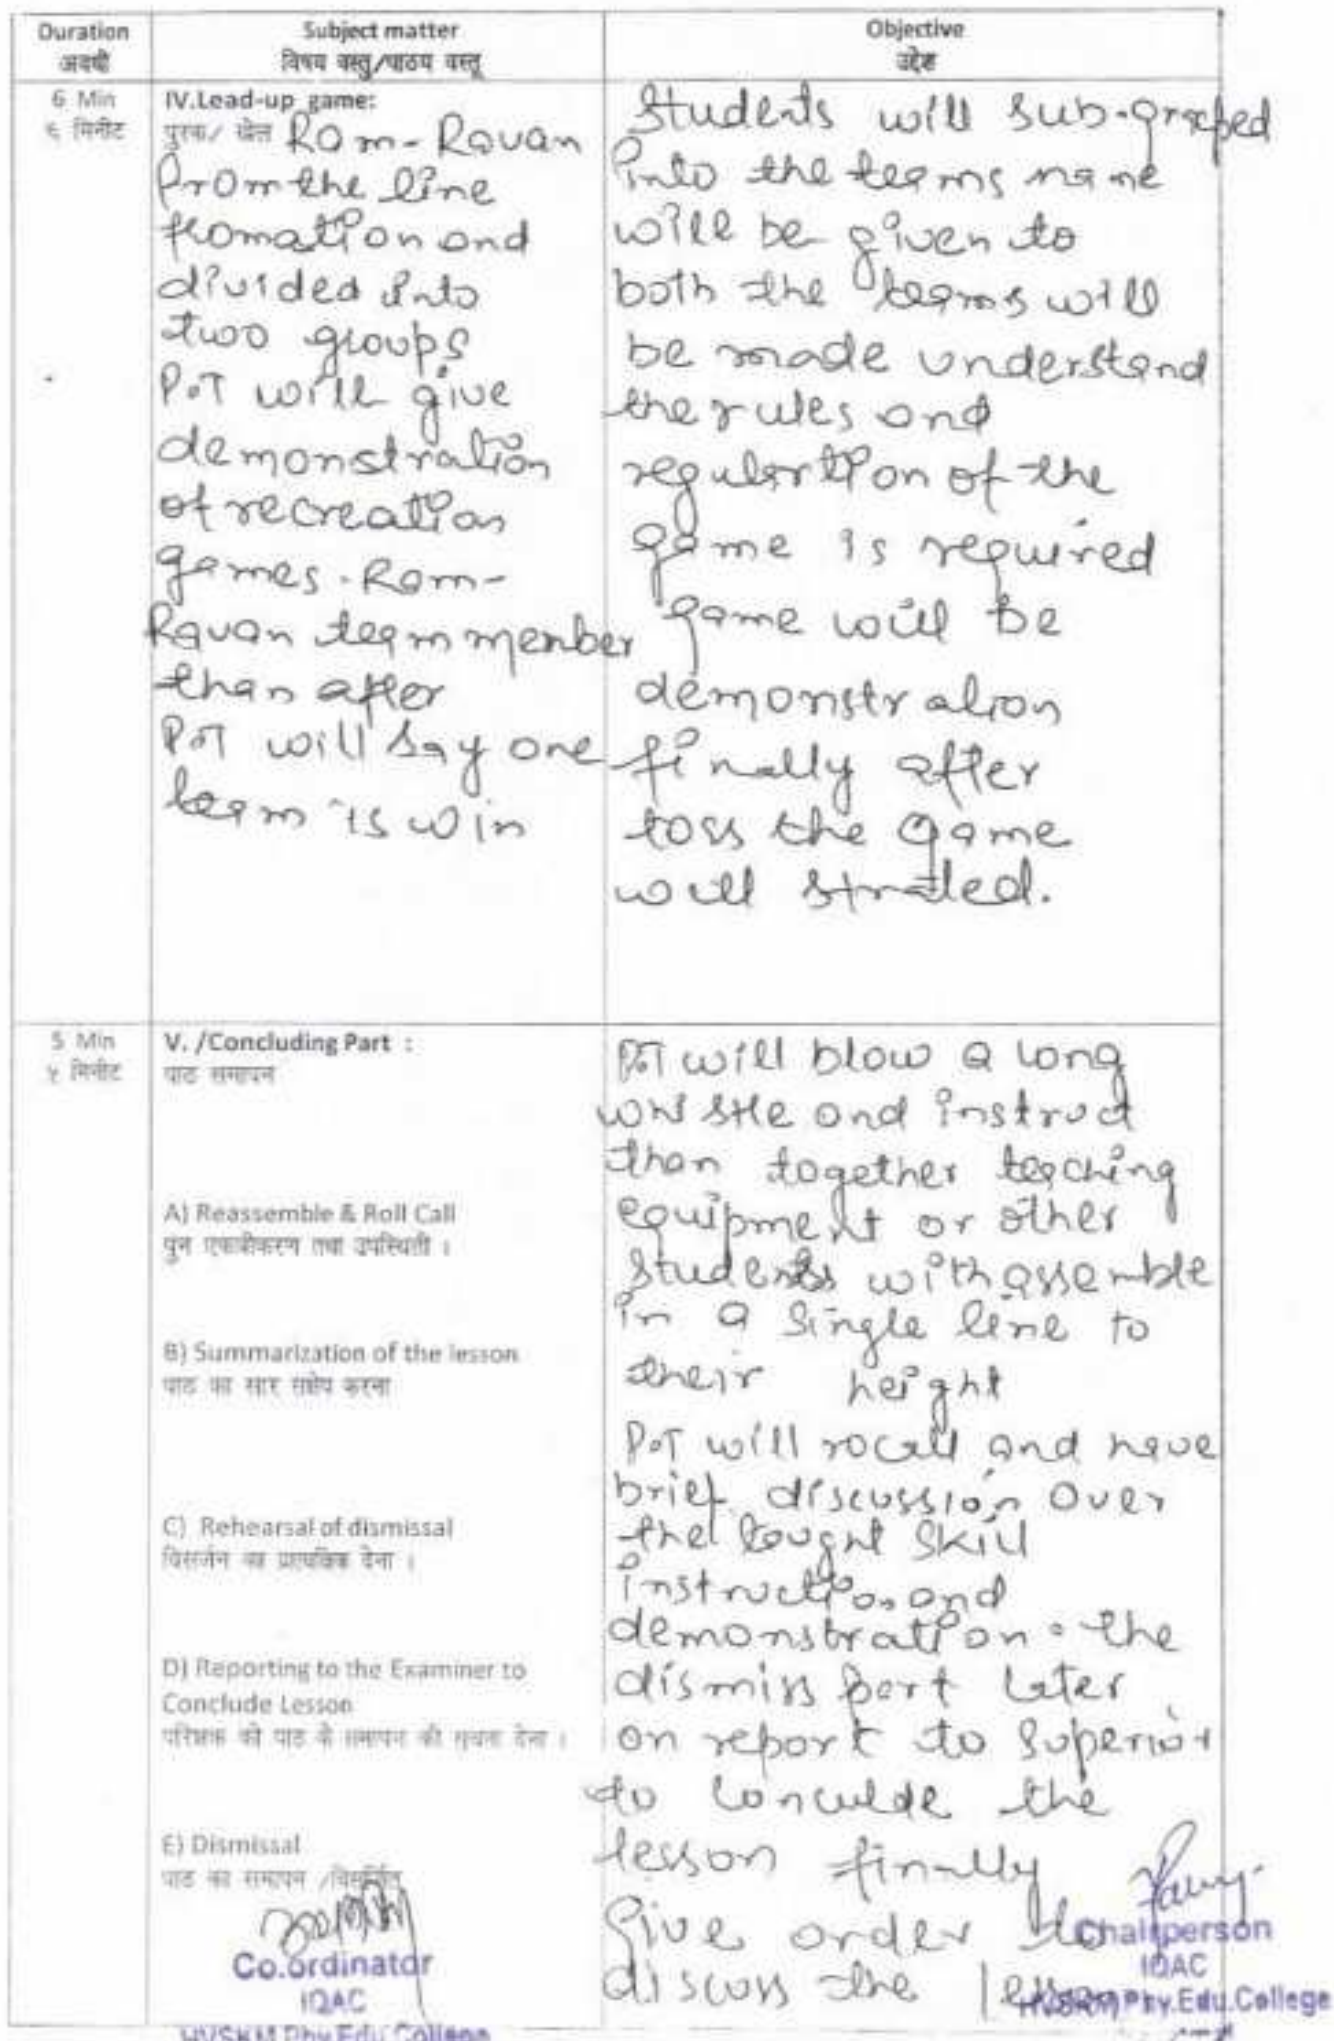 Duration
अवधी
Subject matter
विषय वस्तु/पाठय वस्तू
Objective
उद्देश
6 Min
६ मिनीट
IV.Lead-up game:
पुरक/ खेल Ram-Ravan
From the line
fromation and
divided into
two groups
P.T will give
demonstration
of recreation
games. Ram-
Ravan team member
than after
P.T will say one
team is win
Students will sub-grouped
into the teams name
will be given to
both the teams will
be made understand
the rules and
regulartion of the
game is required
game will be
demonstration
finally after
toss the game
will strated.
5 Min
५ मिनीट
V. /Concluding Part :
पाठ समापन
A) Reassemble & Roll Call
पुन एकत्रीकरण तथा उपस्थिती ।
B) Summarization of the lesson
पाठ का सार संक्षेप करना
C) Rehearsal of dismissal
विसर्जन का प्रात्यक्षिक देना ।
D) Reporting to the Examiner to
Conclude Lesson
परिक्षक को पाठ के समापन की सूचना देना ।
E) Dismissal
पाठ का समापन /विसर्जित
P.T will blow a long
whistle and instruct
than together teaching
equipment or other
students with assemble
in a single line to
their height
P.T will rocall and have
brief discussion over
the tought skill
instruction and
demonstration. the
dismiss part later
on report to superior
to conculde the
lesson finally
give order to
discuss the lesson
Co.ordinator
IQAC
HVSKM Phy.Edu.College
Chairperson
IQAC
HVSKM Phy.Edu.College